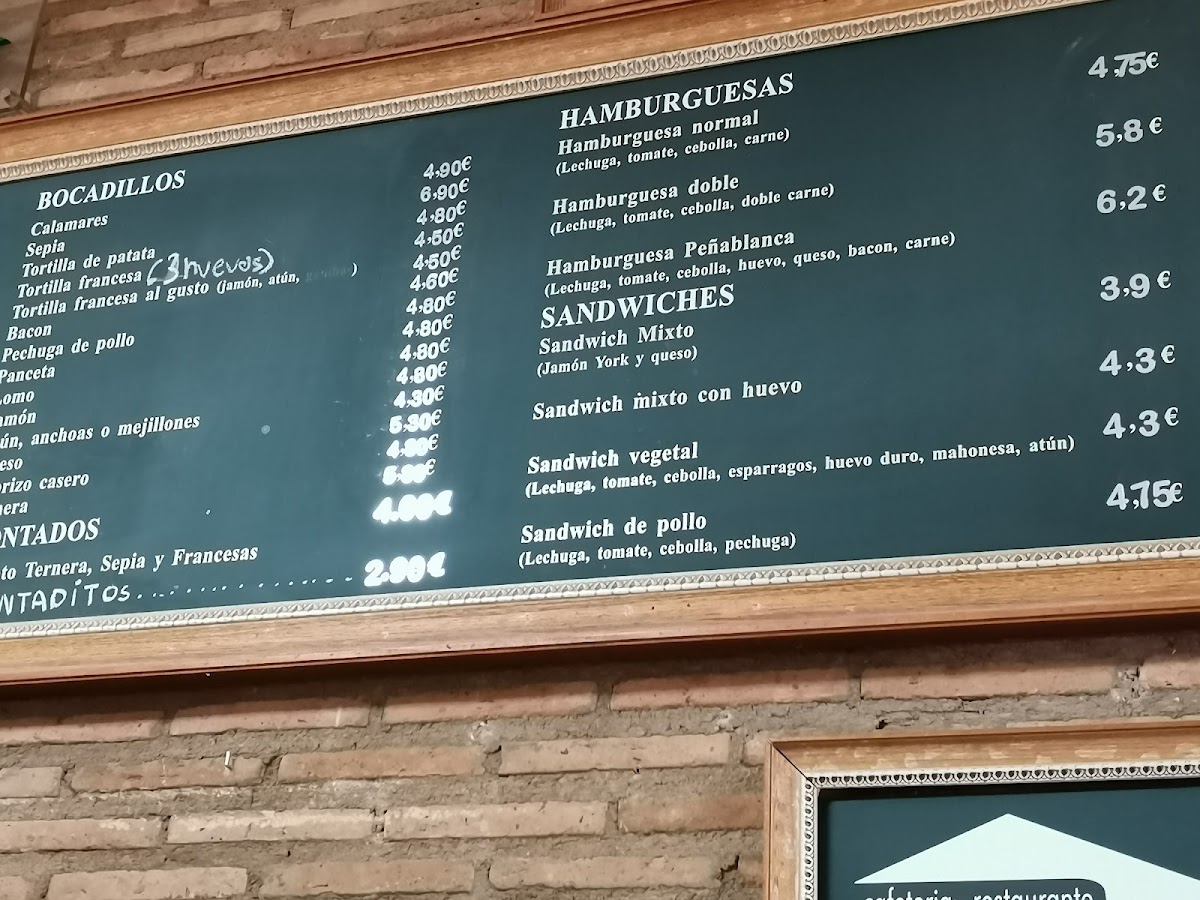 BOCADILLOS
Calamares 4,90€
Sepia 6,90€
Tortilla de patata 4,80€
Tortilla francesa (3 huevos) 4,50€
Tortilla francesa al gusto (jamón, atún, ) 4,50€
Bacon 4,60€
Pechuga de pollo 4,80€
Panceta 4,80€
omo 4,80€
amón 4,80€
ún, anchoas o mejillones 4,30€
eso 5,30€
orizo casero
nera
ONTADOS
to Ternera, Sepia y Francesas
NTADITOS
HAMBURGUESAS
Hamburguesa normal 4,75€
(Lechuga, tomate, cebolla, carne)
Hamburguesa doble 5,8€
(Lechuga, tomate, cebolla, doble carne)
Hamburguesa Peñablanca 6,2€
(Lechuga, tomate, cebolla, huevo, queso, bacon, carne)
SANDWICHES
Sandwich Mixto 3,9€
(Jamón York y queso)
Sandwich mixto con huevo 4,3€
Sandwich vegetal 4,3€
(Lechuga, tomate, cebolla, esparragos, huevo duro, mahonesa, atún)
Sandwich de pollo 4,75€
(Lechuga, tomate, cebolla, pechuga)
cafeteria restaurante